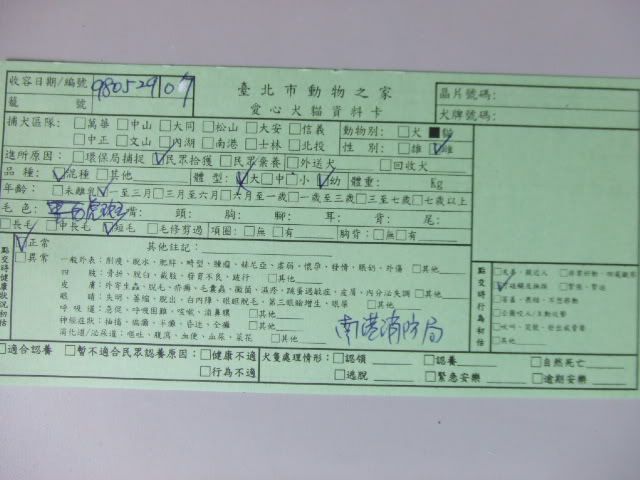 收容日期/編號 980529107 臺北市動物之家 晶片號碼:
籠 號 愛心犬貓資料卡 犬牌號碼:
捕犬區隊: □萬華 □中山 □大同 □松山 □大安 □信義 動物別: □犬 ■貓
□中正 □文山 □內湖 □南港 □士林 □北投 性 別: □雄 ☑雌
進所原因: □環保局捕捉 ☑民眾拾獲 □民眾棄養 □外送犬 □回收犬
品 種: ☑混種 □其他 體 型: □大 □中 □小 ☑幼 體重: Kg
年齡: □未離乳 ☑一至三月 □三月至六月 □六月至一歲 □一歲至三歲 □三至七歲 □七歲以上
毛 色: 虎斑 背: 頭: 胸: 腳: 耳: 背: 尾:
□長毛 □中長毛 ☑短毛 □毛修剪過 項圈: □無 □有 胸背: □無 □有
點交時健康狀況初估 ☑正常 其他註記:
□異常 一般外表: 削瘦、脫水、肥胖、畸型、腫瘤、赫尼亞、虛弱、懷孕、發情、脹奶、外傷 □其他
四 肢: 骨折、脫臼、截肢、發育不良、跛行 □其他
皮 膚: 外寄生蟲、脫毛、疥癬、毛囊蟲、黴菌、濕疹、跳蚤過敏症、皮膚、內分泌失調 □其他
眼 睛: 失明、萎縮、脫出、白內障、眼瞼脫毛、第三眼瞼增生、眼屎 □其他
呼吸道: 急促、呼吸困難、咳嗽、流鼻膿 □其他
神經症狀: 抽搐、癲癇、半癱、昏迷、全癱 □其他
消化道/泌尿道: 嘔吐、腹瀉、血便、血尿、菜花 □其他
南港消防局
點交時行為初估
□其他
□適合認養 □暫不適合民眾認養原因: □健康不適 犬隻處理情形: □認領 □認養 □自然死亡
□行為不適 □逃脫 □緊急安樂 □逾期安樂